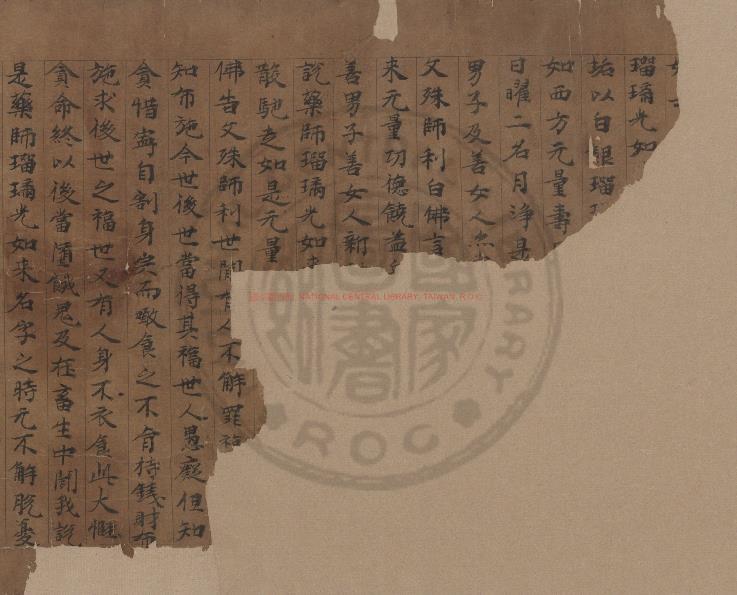 瑠璃光如
垢以白銀瑠
如西方无量壽
日曜二名月淨是
男子及善女人亦
文殊師利白佛言
来无量功德饒益
善男子善女人新
說藥師瑠璃光如来
散馳走如是无量
佛告文殊師利世間有人不解罪福
知布施今世後世當得其福世人愚癡但知
貪惜寧自割身肉而噉食之不肯持錢財布
施求後世之福世又有人身不衣食此大慳
貪命終以後當墮餓鬼及在畜生中聞我說
是藥師瑠璃光如来名字之時无不解脫憂
國家圖書館 NATIONAL CENTRAL LIBRARY, TAIWAN, R.O.C